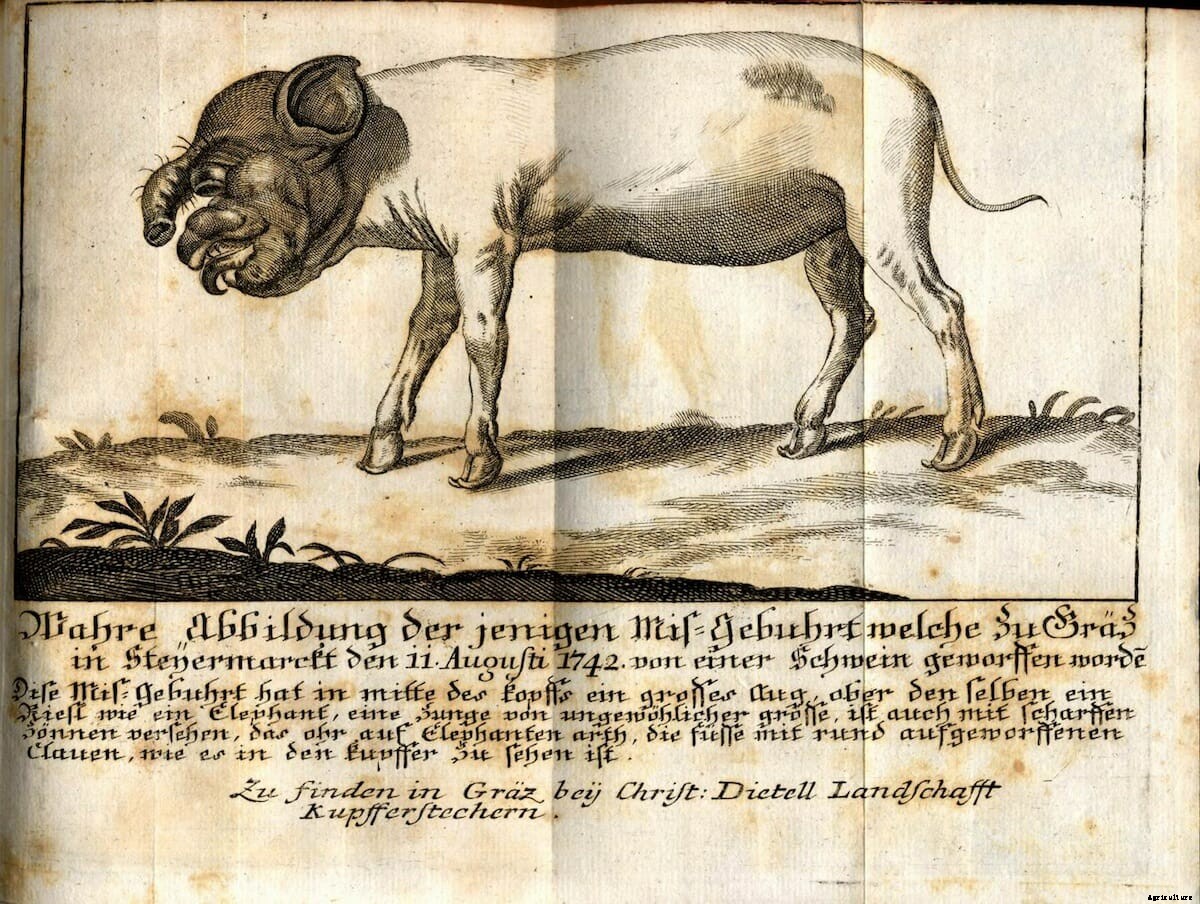 Wahre Abbildung der jenigen Mis-Gebuhrt welche Zu Gräz
in Steyermarckt den 11. Augusti 1742. von einer Schwein geworffen wordē
Dise Mis-Gebuhrt hat in mitte des kopffs ein grosses Aug, ober den selben ein
Riesl wie ein Elephant, eine Zunge von ungewöhlicher grösse, ist auch mit scharffen
Zönnen versehen, das ohr auf Elephanten arth, die füsse mit rund aufgeworffenen
Clauen, wie es in den kupffer Zu sehen ist.
Zu finden in Gräz beÿ Christ: Dietell Landschafft
Kupfferstechern.
Agriculture